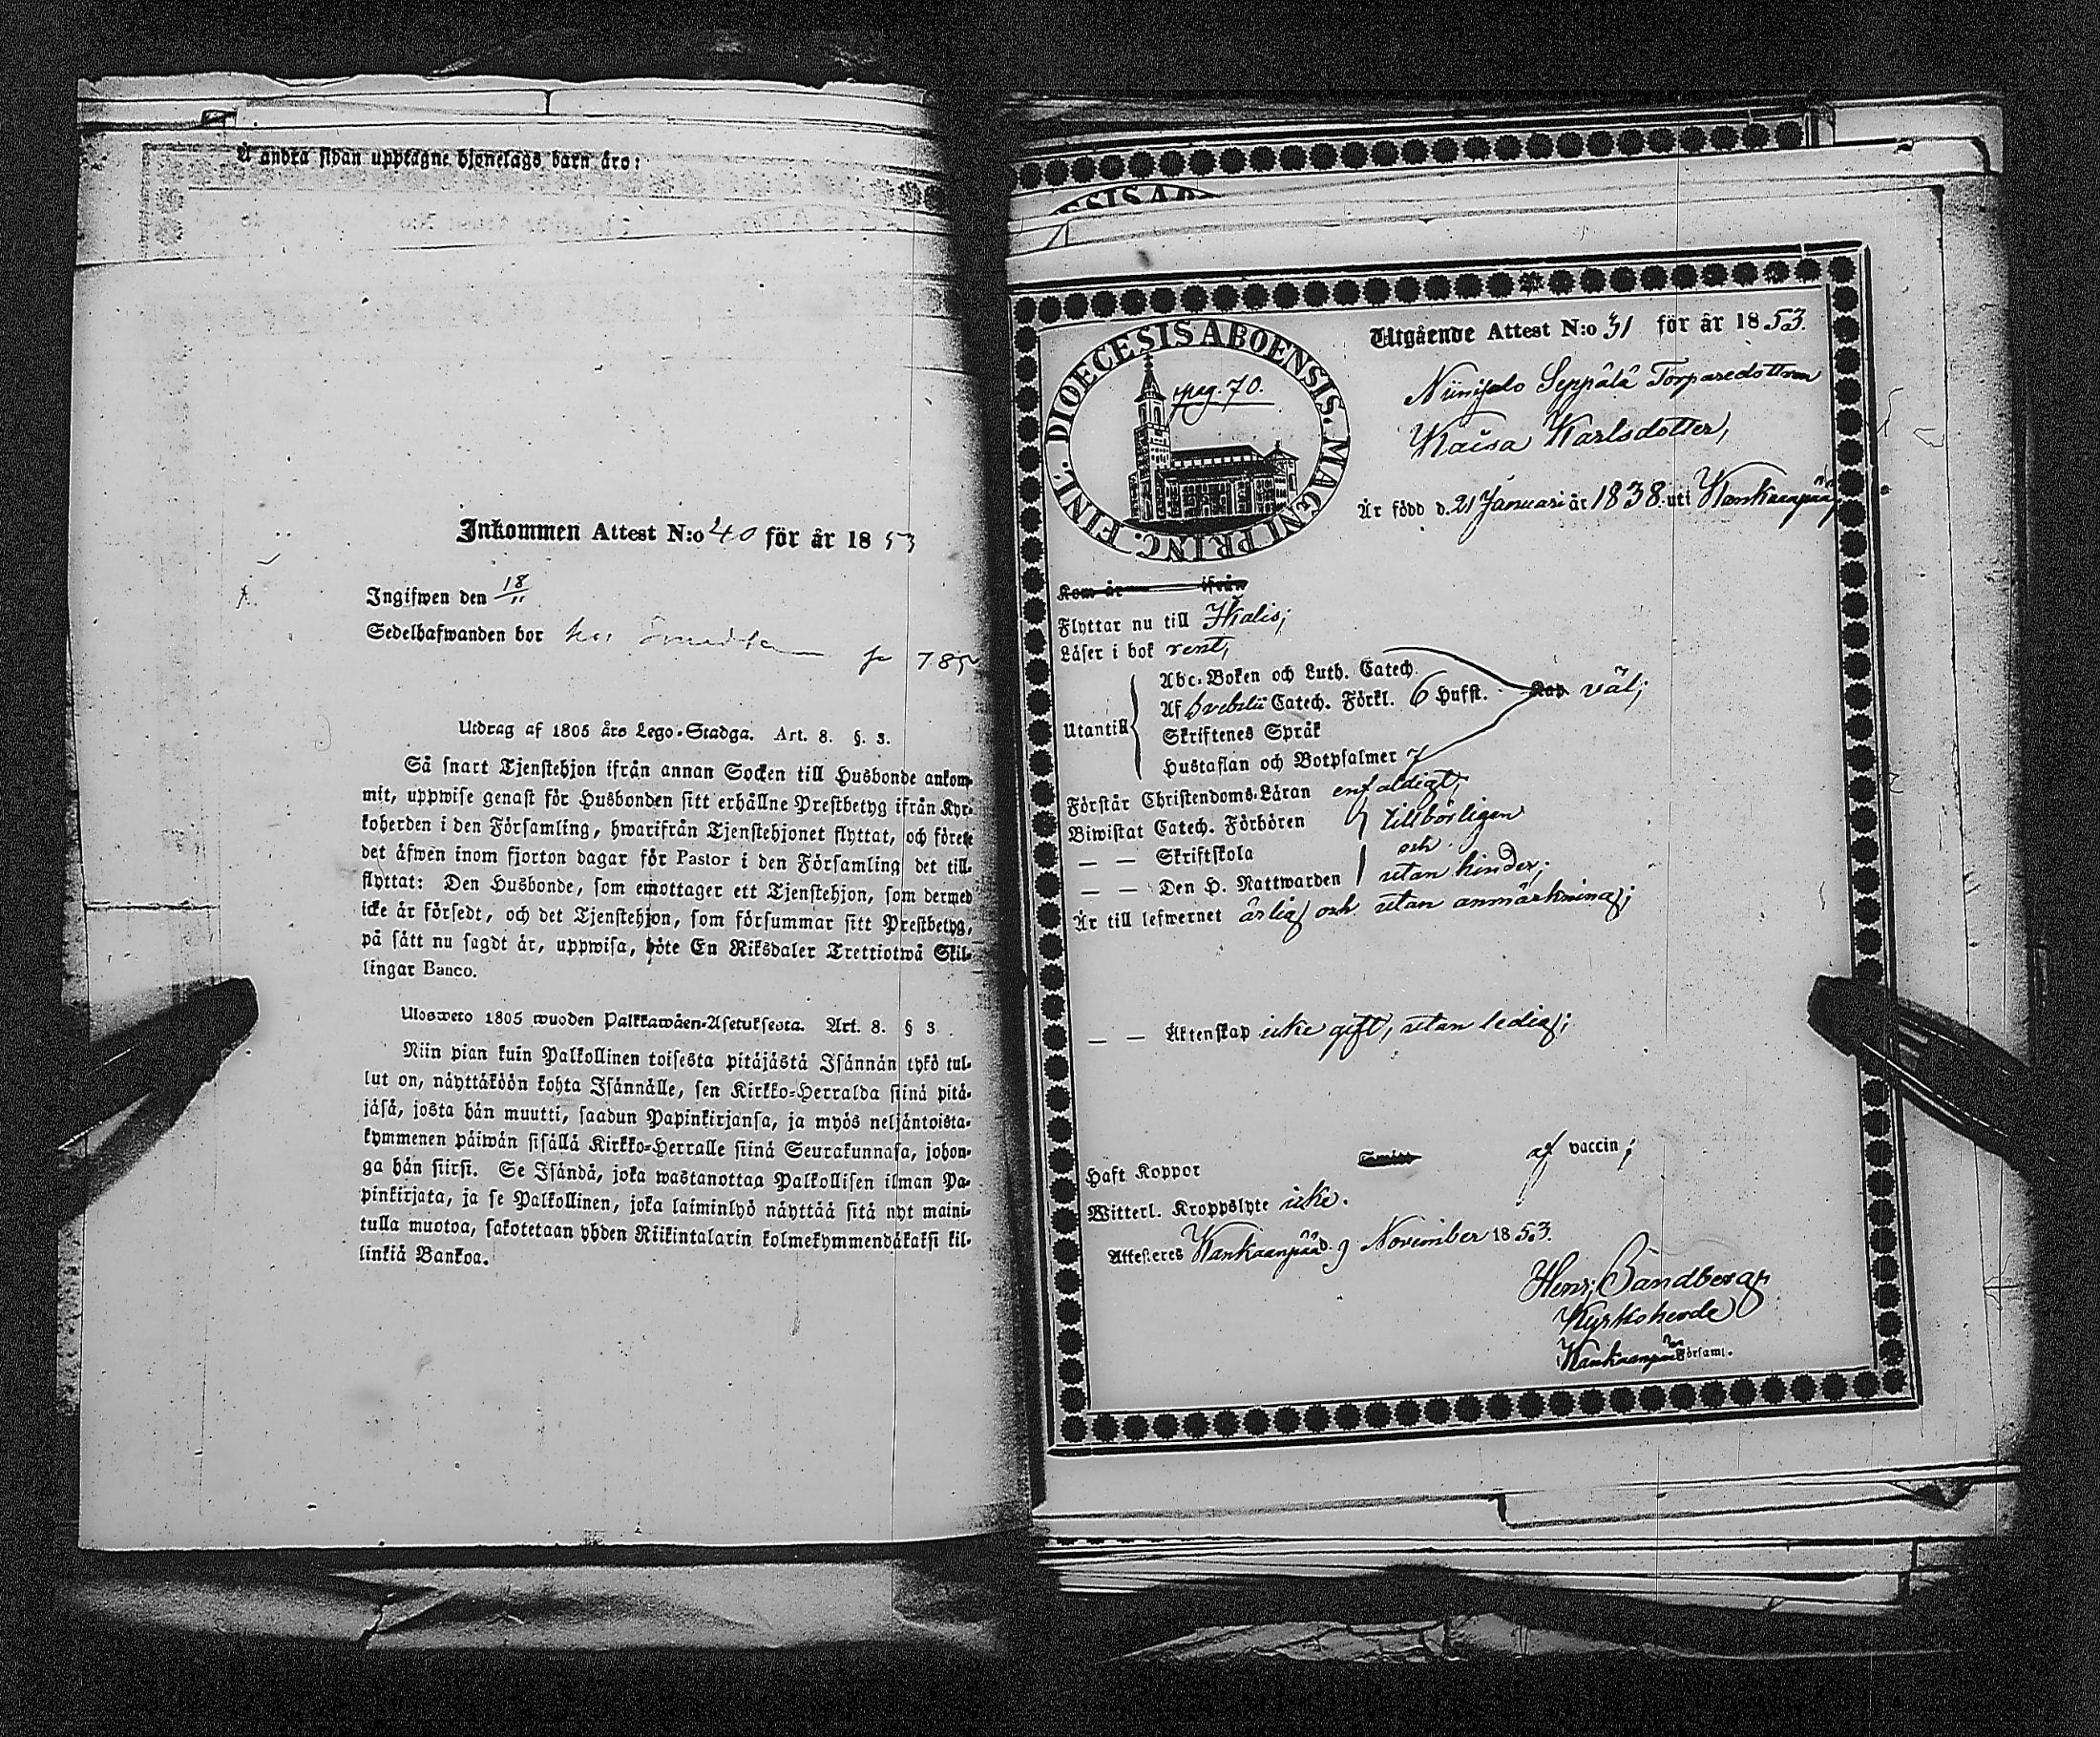 Å andra sidan upptagne hjonelags barn äro:
Inkommen Attest N:o 40 för år 1853
Ingifwen den 18/11
Sedelhafwanden bor hos
Utdrag af 1805 års Lego-Stadga. Art. 8. §. 3.
Så snart Tjenstehjon ifrån annan Socken till Husbonde ankom-
mit, uppwise genast för Husbonden sitt erhållne Prestbetyg ifrån Kyr-
koherden i den Församling, hwarifrån Tjenstehjonet flyttat, och förete
det äfwen inom fjorton dagar för Pastor i den Församling det till-
flyttat: Den Husbonde, som emottager ett Tjenstehjon, som dermed
icke är försedt, och det Tjenstehjon, som försummar sitt Prestbetyg,
på sätt nu sagdt är, uppwisa, böte En Riksdaler Trettiotwå Skil-
lingar Banco.
Ulosweto 1805 wuoden Palkkawäen-Asetuksesta. Art. 8. § 3.
Niin pian kuin Palkollinen toisesta pitäjästä Isännän tykö tul-
lut on, näyttäköön kohta Isännälle, sen Kirkko-Herralda siinä pitä-
jäsä, josta hän muutti, saadun Papinkirjansa, ja myös neljäntoista-
kymmenen päiwän sisällä Kirkko-Herralle siinä Seurakunnasa, johon-
ga hän siirsi. Se Isändä, joka wastanottaa Palkollisen ilman Pa-
pinkirjata, ja se Palkollinen, joka laiminlyö näyttää sitä nyt maini-
tulla muotoa, sakotetaan yhden Riikintalarin kolmekymmendäkaksi kil-
linkiä Bankoa.
ESIS AB
DIOECESIS ABOENSIS. MAGNI PRINC. FINL.
pag. 70.
Utgående Attest N:o 31 för år 1853.
Niinisalo Seppälä Torparedottren
Kaisa Karlsdotter,
Är född d. 21 Januari år 1838. uti Kankaanpää,
Kom år ifrån
Flyttar nu till Ikalis;
Läser i bok rent,
Utantill
Abc-Boken och Luth. Catech.
Af Svebelii Catech. Förkl. 6 Hufst. Kap väl;
Skriftenes Språk
Hustaflan och Botpsalmer 7
Förstår Christendoms-Läran enfaldigt;
Biwistat Catech. Förhören tillbörligen
— — Skriftskola och
— — Den H. Nattwarden utan hinder;
Är till lefwernet ärlig och utan anmärkning;
— — Äktenskap icke gift, utan ledig;
Haft Koppor af vaccin;
Witterl. Kroppslyte icke.
Attesteres Kankaanpää d. 9 November 1853.
Henr: Sandberg
Kyrkoherde
Kankaanpää Församl.